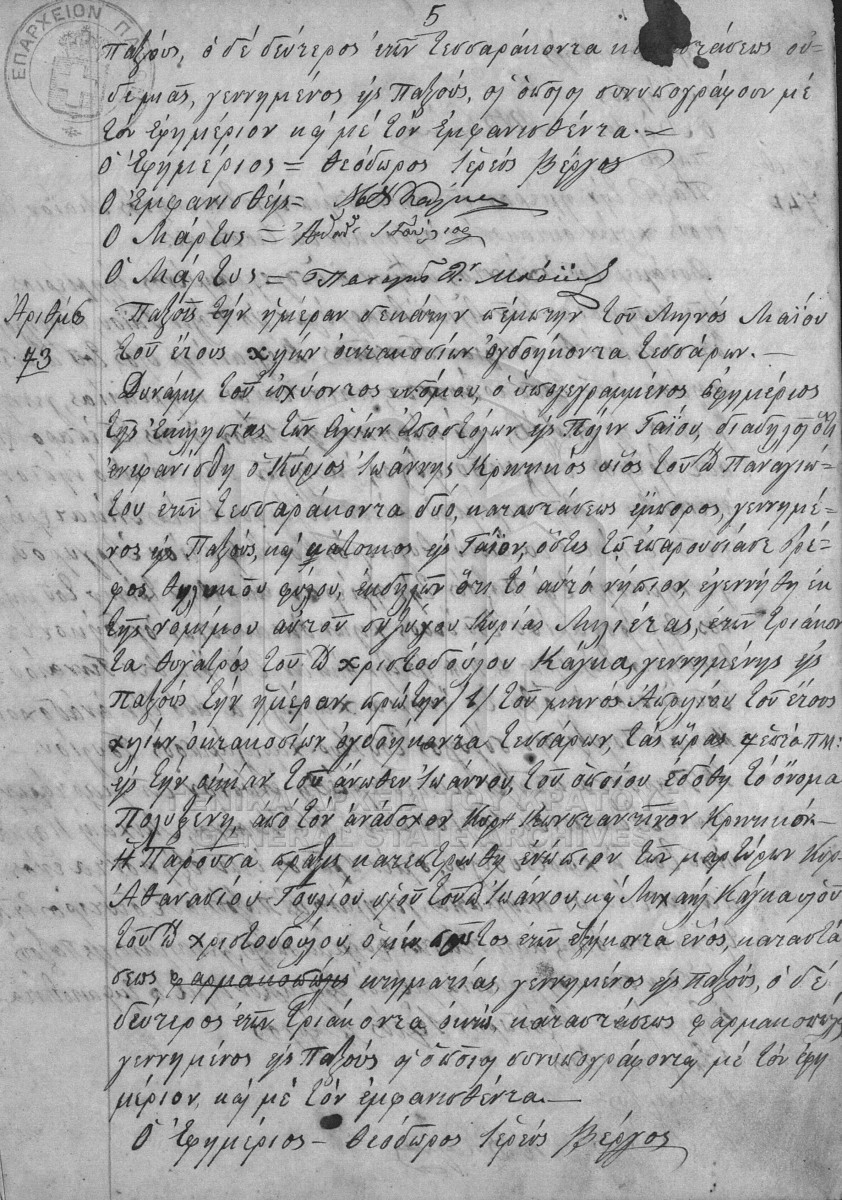 5
ΕΠΑΡΧΕΙΟΝ
Παξούς, ὁ δέ δεύτερος ἐτῶν τεσσαράκοντα καταστάσεως οὐ-
δεμιᾶς, γεννημένος εἰς Παξούς, οἱ ὁποῖοι συνυπογράφουν μέ
τόν Ἐφημέριον καί μέ τόν Ἐμφανισθέντα.
Ὁ Ἐφημέριος = Θεόδωρος Ἱερεύς Βέργος
Ὁ Ἐμφανισθείς =
Ὁ Μάρτυς =
Ὁ Μάρτυς = Παναγιώτης
Ἀριθμός
73
Παξοῖς τήν ἡμέραν δεκάτην πέμπτην τοῦ Μηνός Μαΐου
τοῦ ἔτους χιλίων ὀκτακοσίων ὀγδοήκοντα τεσσάρων. —
Δυνάμει τοῦ ἰσχύοντος νόμου, ὁ ὑπογεγραμμένος Ἐφημέριος
τῆς Ἐκκλησίας τῶν Ἁγίων Ἀποστόλων εἰς Πόλιν Γαΐου, διαδηλοῖ ὅτι
ἐνεφανίσθη ὁ Κύριος Ἰωάννης Κρητικός υἱός τοῦ Παναγιώ-
του ἐτῶν τεσσαράκοντα δυό, καταστάσεως ἔμπορος, γεννημέ-
νος εἰς Παξούς, καί κάτοικος εἰς Γάϊον, ὅστις τῷ ἐπαρουσίασε βρέ-
φος θηλυκοῦ φύλου, ἐκδηλῶν ὅτι τό αὐτό νήπιον, ἐγεννήθη ἐκ
τῆς νομίμου αὐτοῦ συζύγου Κυρίας Μιλιέτας, ἐτῶν τριάκον
τα θυγατρός τοῦ Χριστοδούλου Κάγκα, γεννημένης εἰς
Παξούς τήν ἡμέραν πρώτην /1/ τοῦ μηνός Ἀπριλίου τοῦ ἔτους
χιλίων ὀκτακοσίων ὀγδοήκοντα τεσσάρων, τάς ὥρας π.μ:
εἰς τήν οἰκίαν τοῦ ἄνωθεν Ἰωάννου, τοῦ ὁποίου ἐδόθη τό ὄνομα
Πολυξένη, ἀπό τόν ἀνάδοχον Κύρ Κωνσταντῖνον Κρητικόν. —
Ἡ Παροῦσα πρᾶξις κατεστρώθη ἐνώπιον τῶν μαρτύρων Κύρ
Ἀθανασίου υἱοῦ τοῦ Ἰωάννου, καί Μιχαήλ Κάγκα υἱοῦ
τοῦ Χριστοδούλου, ὁ μέν πρῶτος ἐτῶν ἑξήκοντα ἑνός, καταστά
σεως φαρμακοποιός κτηματίας, γεννημένος εἰς Παξούς, ὁ δέ
δεύτερος ἐτῶν τριάκοντα ὀκτώ, καταστάσεως φαρμακοποιός
γεννημένος εἰς Παξούς οἱ ὁποῖοι συνυπογράφονται μέ τόν ἐφη
μέριον, καί μέ τόν ἐμφανισθέντα. —
Ὁ Ἐφημέριος — Θεόδωρος Ἱερεύς Βέργος
ΓΕΝΙΚΑ ΑΡΧΕΙΑ ΤΟΥ ΚΡΑΤΟΥΣ
GENERAL STATE ARCHIVES